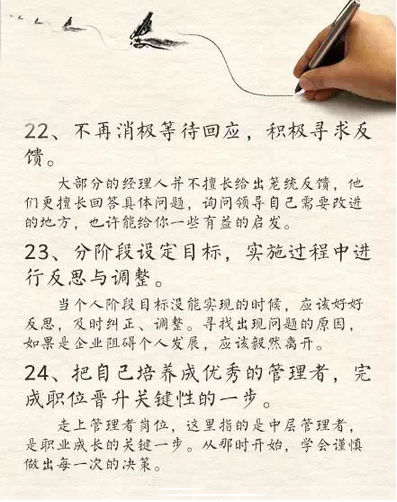 22、不再消极等待回应，积极寻求反
馈。
大部分的经理人并不擅长给出笼统反馈，他
们更擅长回答具体问题，询问领导自己需要改进
的地方，也许能给你一些有益的启发。
23、分阶段设定目标，实施过程中进
行反思与调整。
当个人阶段目标没能实现的时候，应该好好
反思，及时纠正、调整。寻找出现问题的原因，
如果是企业阻碍个人发展，应该毅然离开。
24、把自己培养成优秀的管理者，完
成职位晋升关键性的一步。
走上管理者岗位，这里指的是中层管理者，
是职业成长的关键一步。从那时开始，学会谨慎
做出每一次的决策。